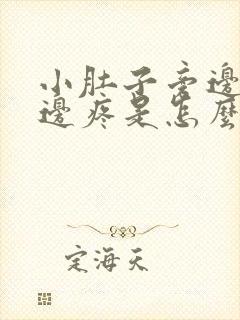 小肚子旁邊
邊疼是怎麼
定海天